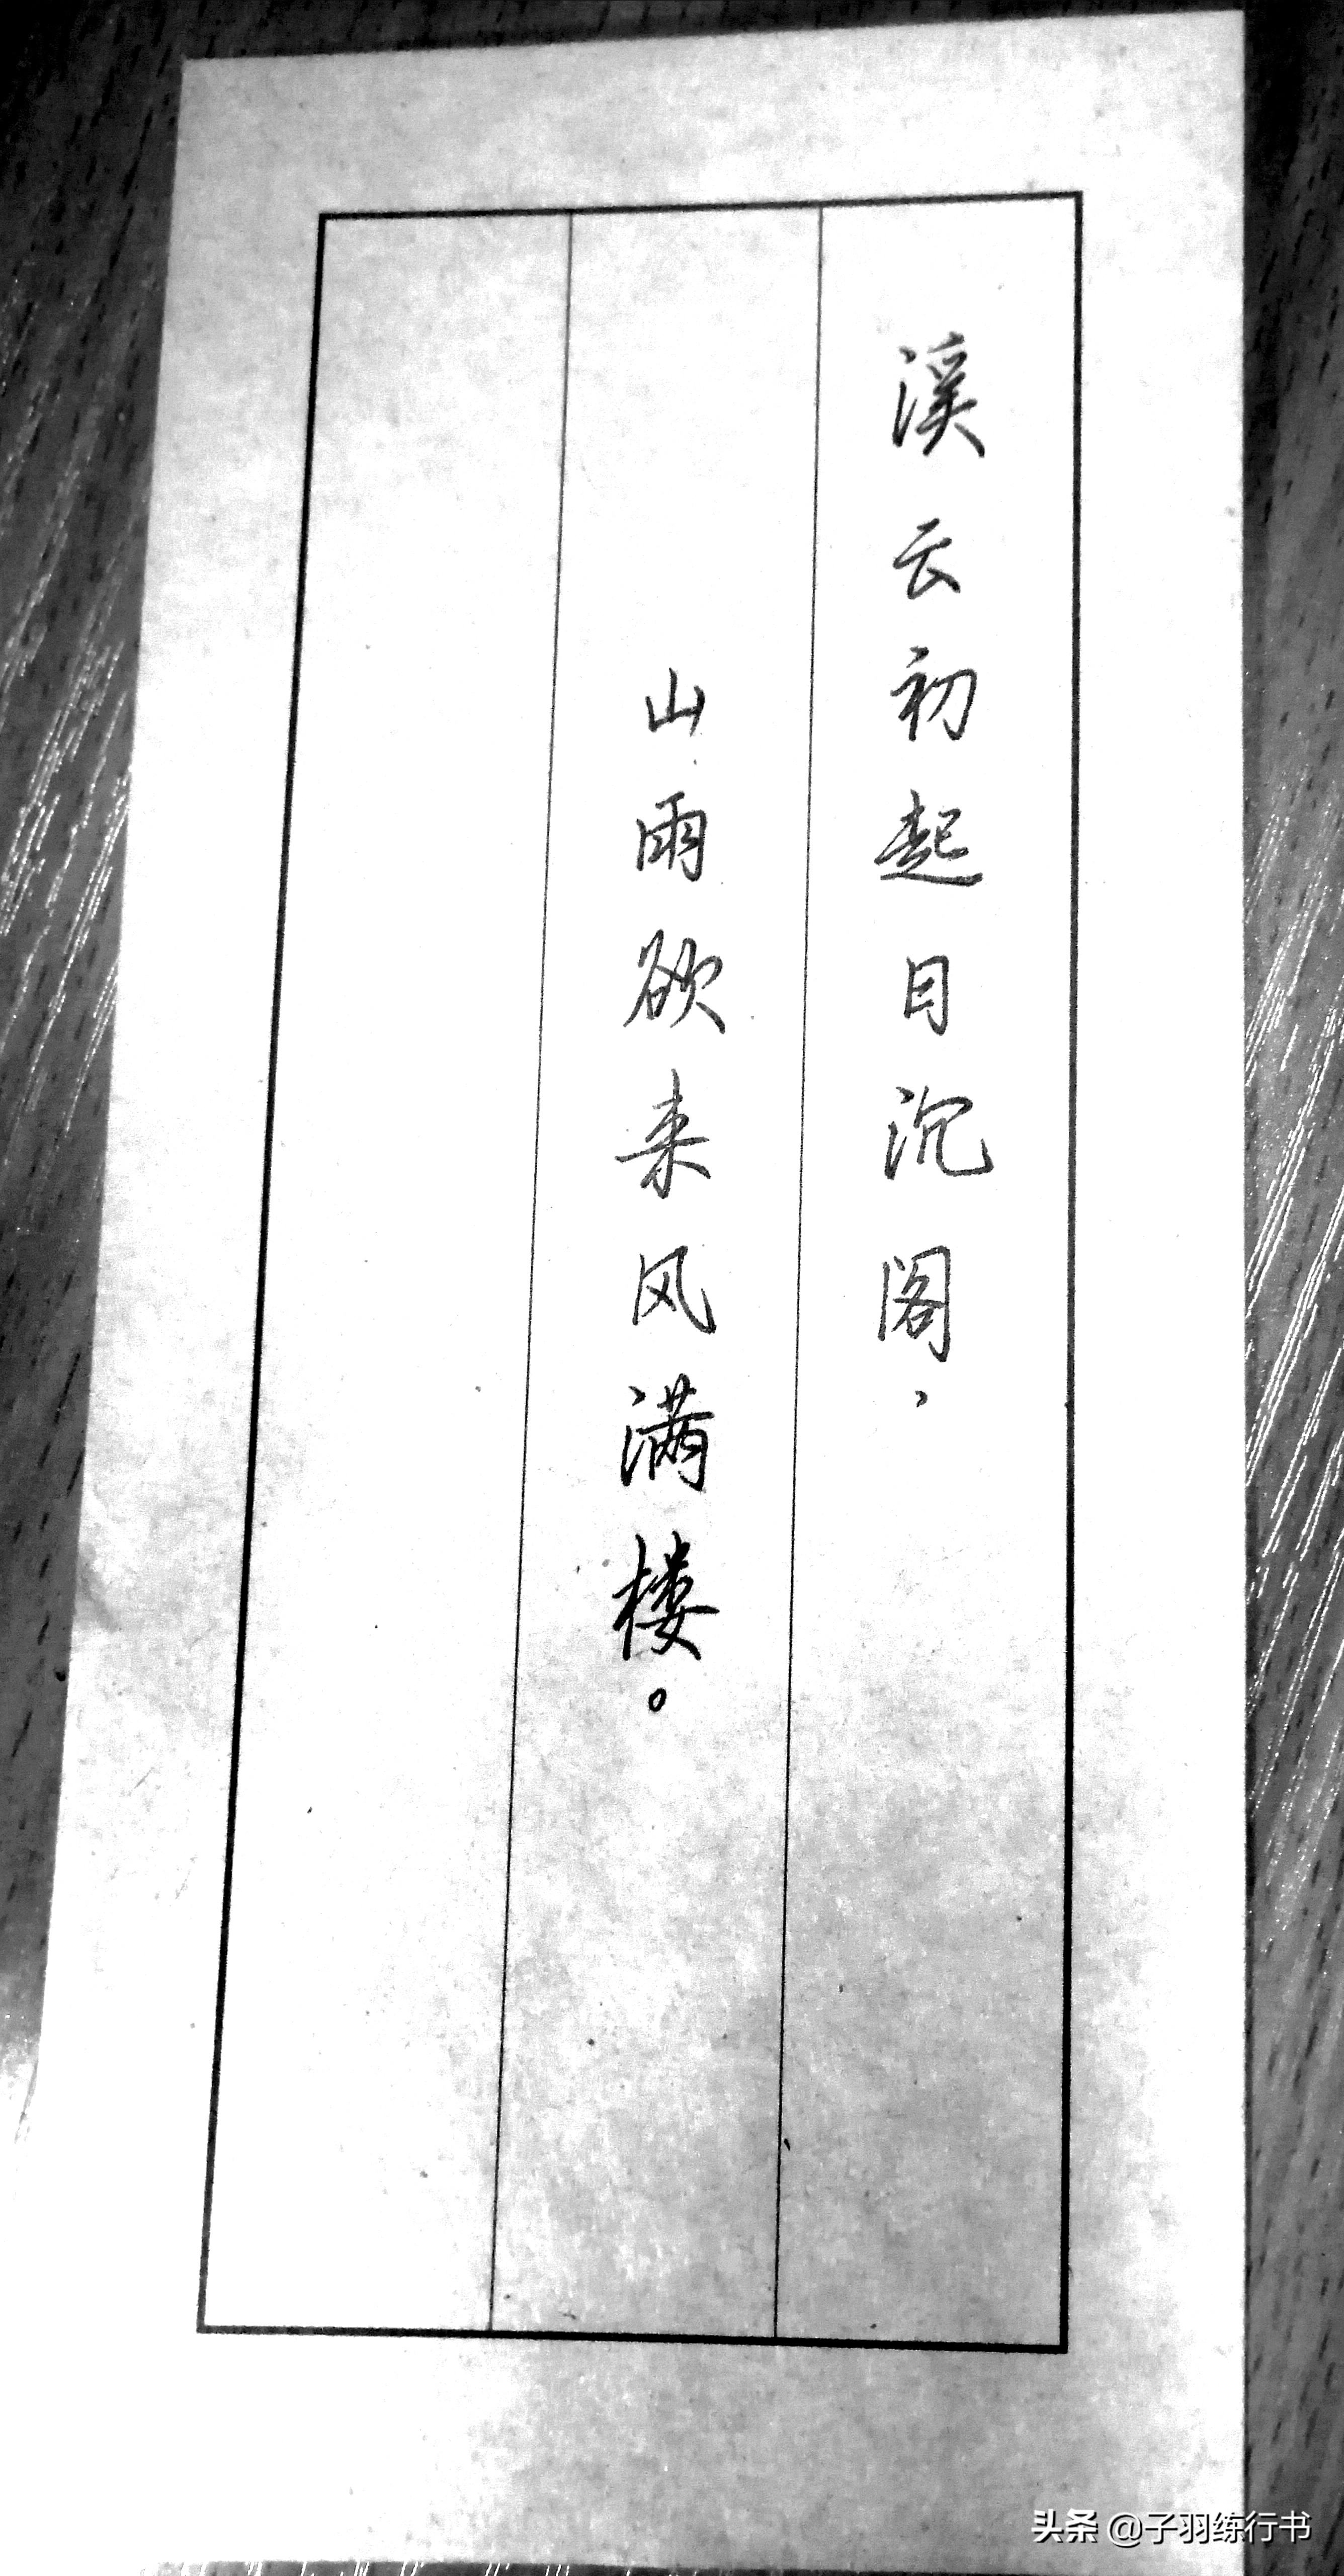 溪云初起目沉阁，
山雨欲来风满楼。
头条 @子羽练行书